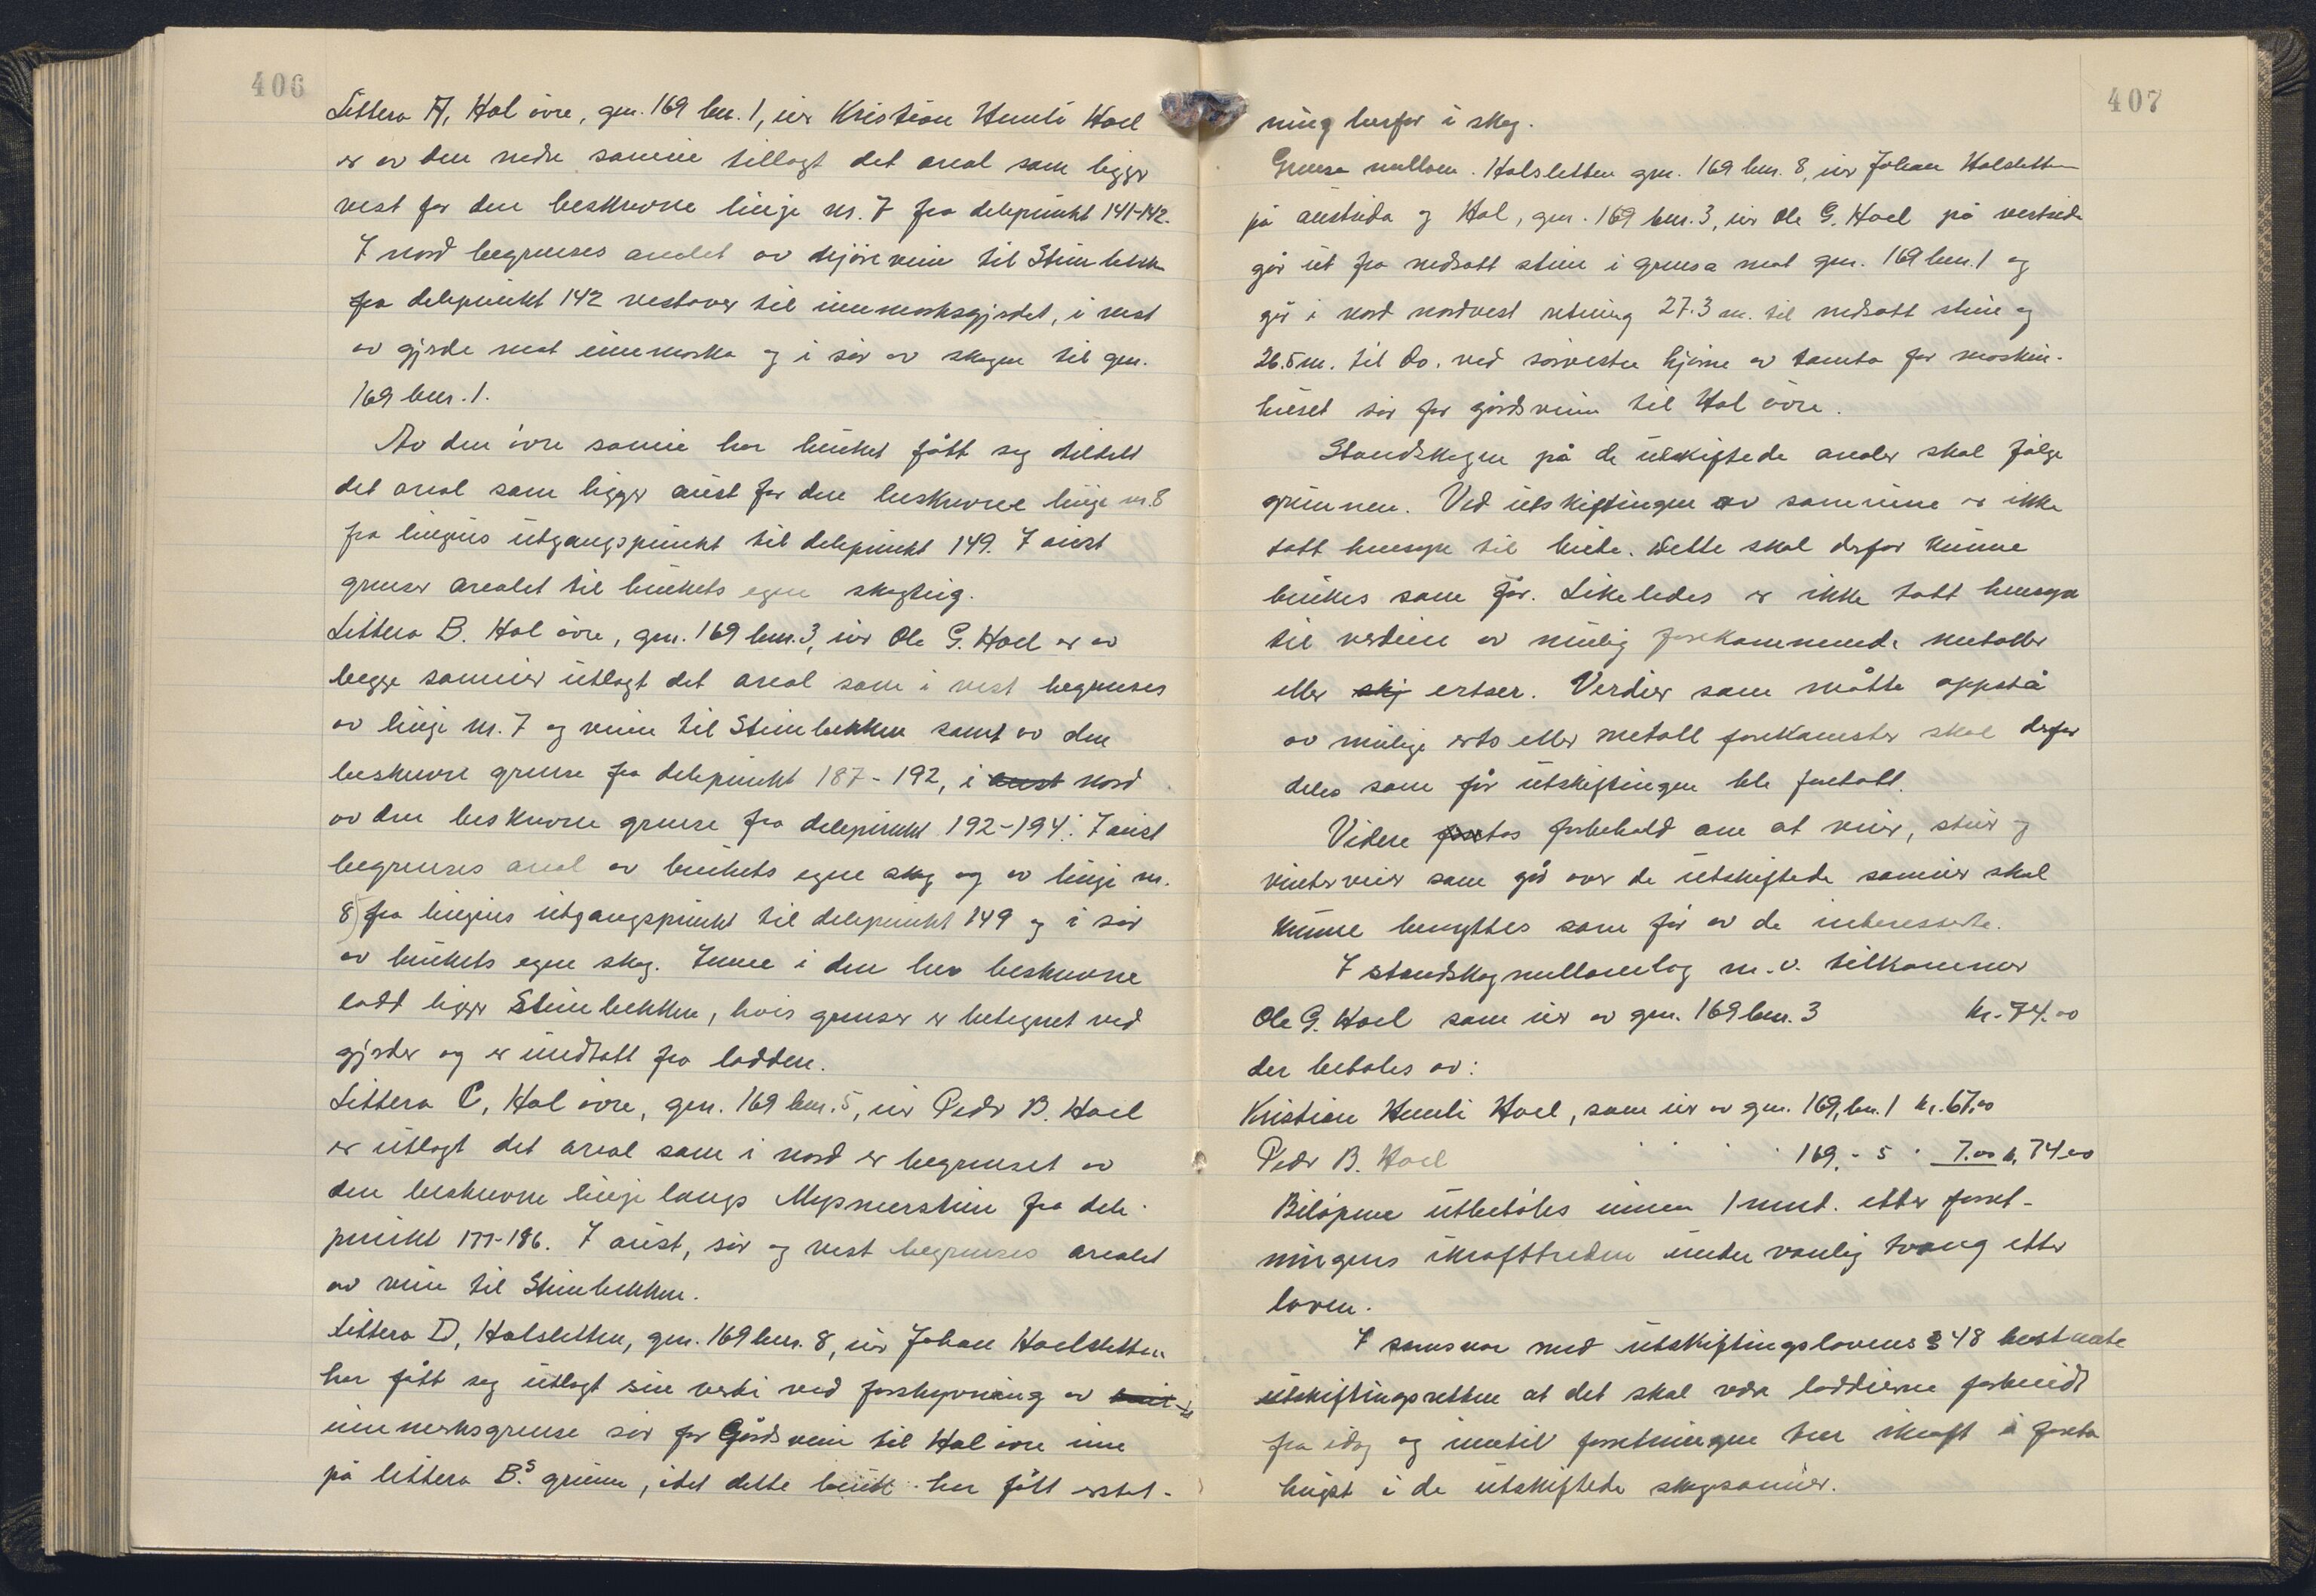 406
Littera A, Hol övre, gnr. 169 bnr. 1, eier Kristian Humli Hoel
er av den nedre sameie tillagt det areal som ligger
vest for den beskrevne linje nr. 7 fra delepunkt 141-142.
I nord begrenses arealet av kjøreveien til Steinbekken
fra delepunkt 142 vestover til innmarksgjerdet, i vest
av gjerde mot innmarka og i sør av skogen til gnr.
169 bnr. 1.
Av den övre sameie har bruket fått seg tildelt
det areal som ligger aust for den beskrevne linje nr. 8
fra linjens utgangspunkt til delepunkt 149. I aust
grenser arealet til brukets egen skogteig.
Littera B. Hol övre, gnr. 169 bnr. 3, eier Ole G. Hoel er av
begge sameier utlagt det areal som i vest begrenses
av linje nr. 7 og veien til Steinbekken samt av den
beskrevne grense fra delepunkt 187-192, i aust nord
av den beskrevne grense fra delepunkt 192-194. I aust
begrenses areal av brukets egen skog og av linje nr.
8) fra linjens utgangspunkt til delepunkt 149 og i sör
av brukets egen skog. Inne i den her beskrevne
lodd ligger Steinbekken, hvis grenser er betegnet ved
gjerder og er undtatt fra lodden.
Littera C, Hol övre, gnr. 169 bnr. 5, eier Peder B. Hoel
er utlagt det areal som i nord er begrenset av
den beskrevne linje langs Mysmerstien fra dele-
punkt 177-186. I aust, sör og vest begrenses arealet
av veien til Steinbekken.
Littera D, Holsletten, gnr. 169 bnr. 8, eier Johan Hoelsletten
har fått seg utlagt sin verdi ved forskyvning av
innmarksgrense sör for Gårdsveien til Hol övre inn
på littera B.s grunn, idet dette bruk har fått erstat-
407
ning herfor i skog.
Grensa mellom Holsletten gnr. 169 bnr. 8, eier Johan Holsletten
på austsida og Hol, gnr. 169 bnr. 3, eier Ole G. Hoel på vestsida
går ut fra nedsatt stein i grensa mot gnr. 169 bnr. 1 og
går i nord nordvest retning 27.3 m. til nedsatt stein og
26.5 m. til do. ved sörvestre hjörne av tomta for maskin-
huset sör for gårdsveien til Hol övre.
Standskogen på de utskiftede arealer skal fölge
grunnen. Ved utskiftingen av sameiene er ikke
tatt hensyn til beite. Dette skal derfor kunne
brukes som för. Likeledes er ikke tatt hensyn
til verdien av mulig forekommende metaller
eller skj ertser. Verdier som måtte oppstå
av mulige erts eller metall forekomster skal derfor
deles som för utskiftingen ble foretatt.
Videre tas forbehold om at veier, stier og
vinterveier som går over de utskiftede sameier skal
kunne benyttes som för av de interesserte.
I standskogmellomlag m.v. tilkommer
Ole G. Hoel som eier av gnr. 169 bnr. 3 kr. 74.00
der betales av:
Kristian Humli Hoel, som eier av gnr. 169, bnr. 1 kr. 67.00
Peder B. Hoel " " " 169 - 5 " 7.00 kr. 74.00
Belöpene utbetales innen 1 mnd. etter forret-
ningens ikrafttreden under vanlig tvang etter
loven.
I samsvar med utskiftingslovens § 48 bestemte
utskiftingsretten at det skal være loddeierne forbudt
fra idag og inntil forretningen trer ikraft å foreta
hugst i de utskiftede skogsameier.